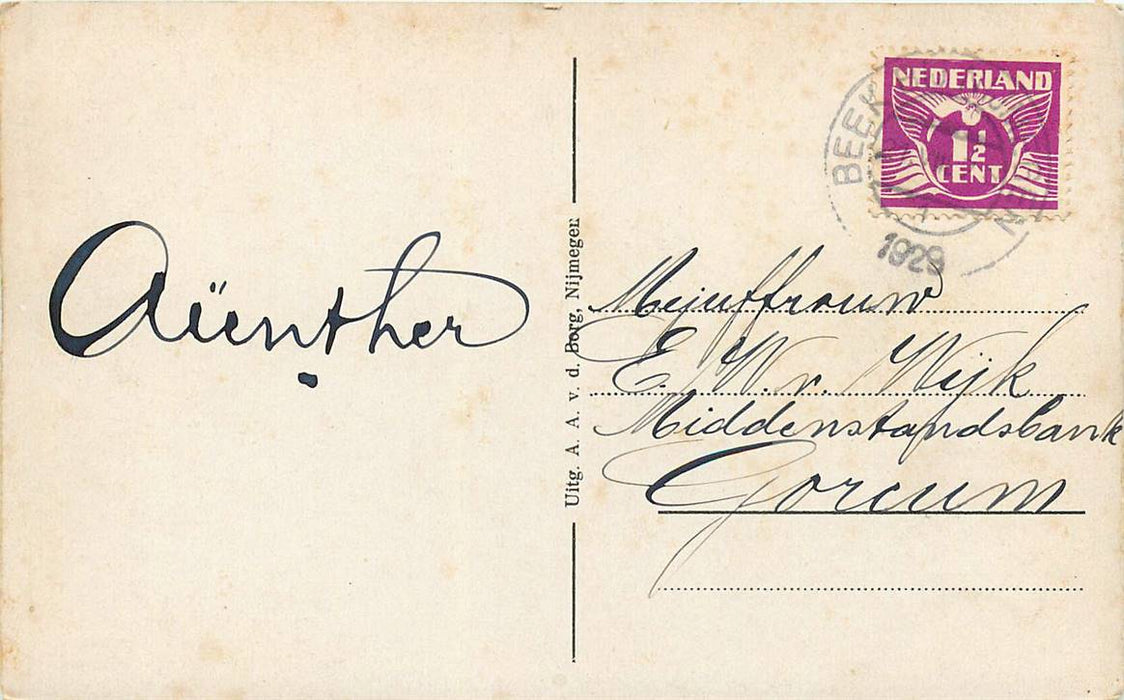 Aüenther
Uitg. A. A. v. d. Borg, Nijmegen
NEDERLAND
1½
CENT
BEEK
1929
Mejuffrouw
E. W. v. Wijk
Middenstandsbank
Gorcum